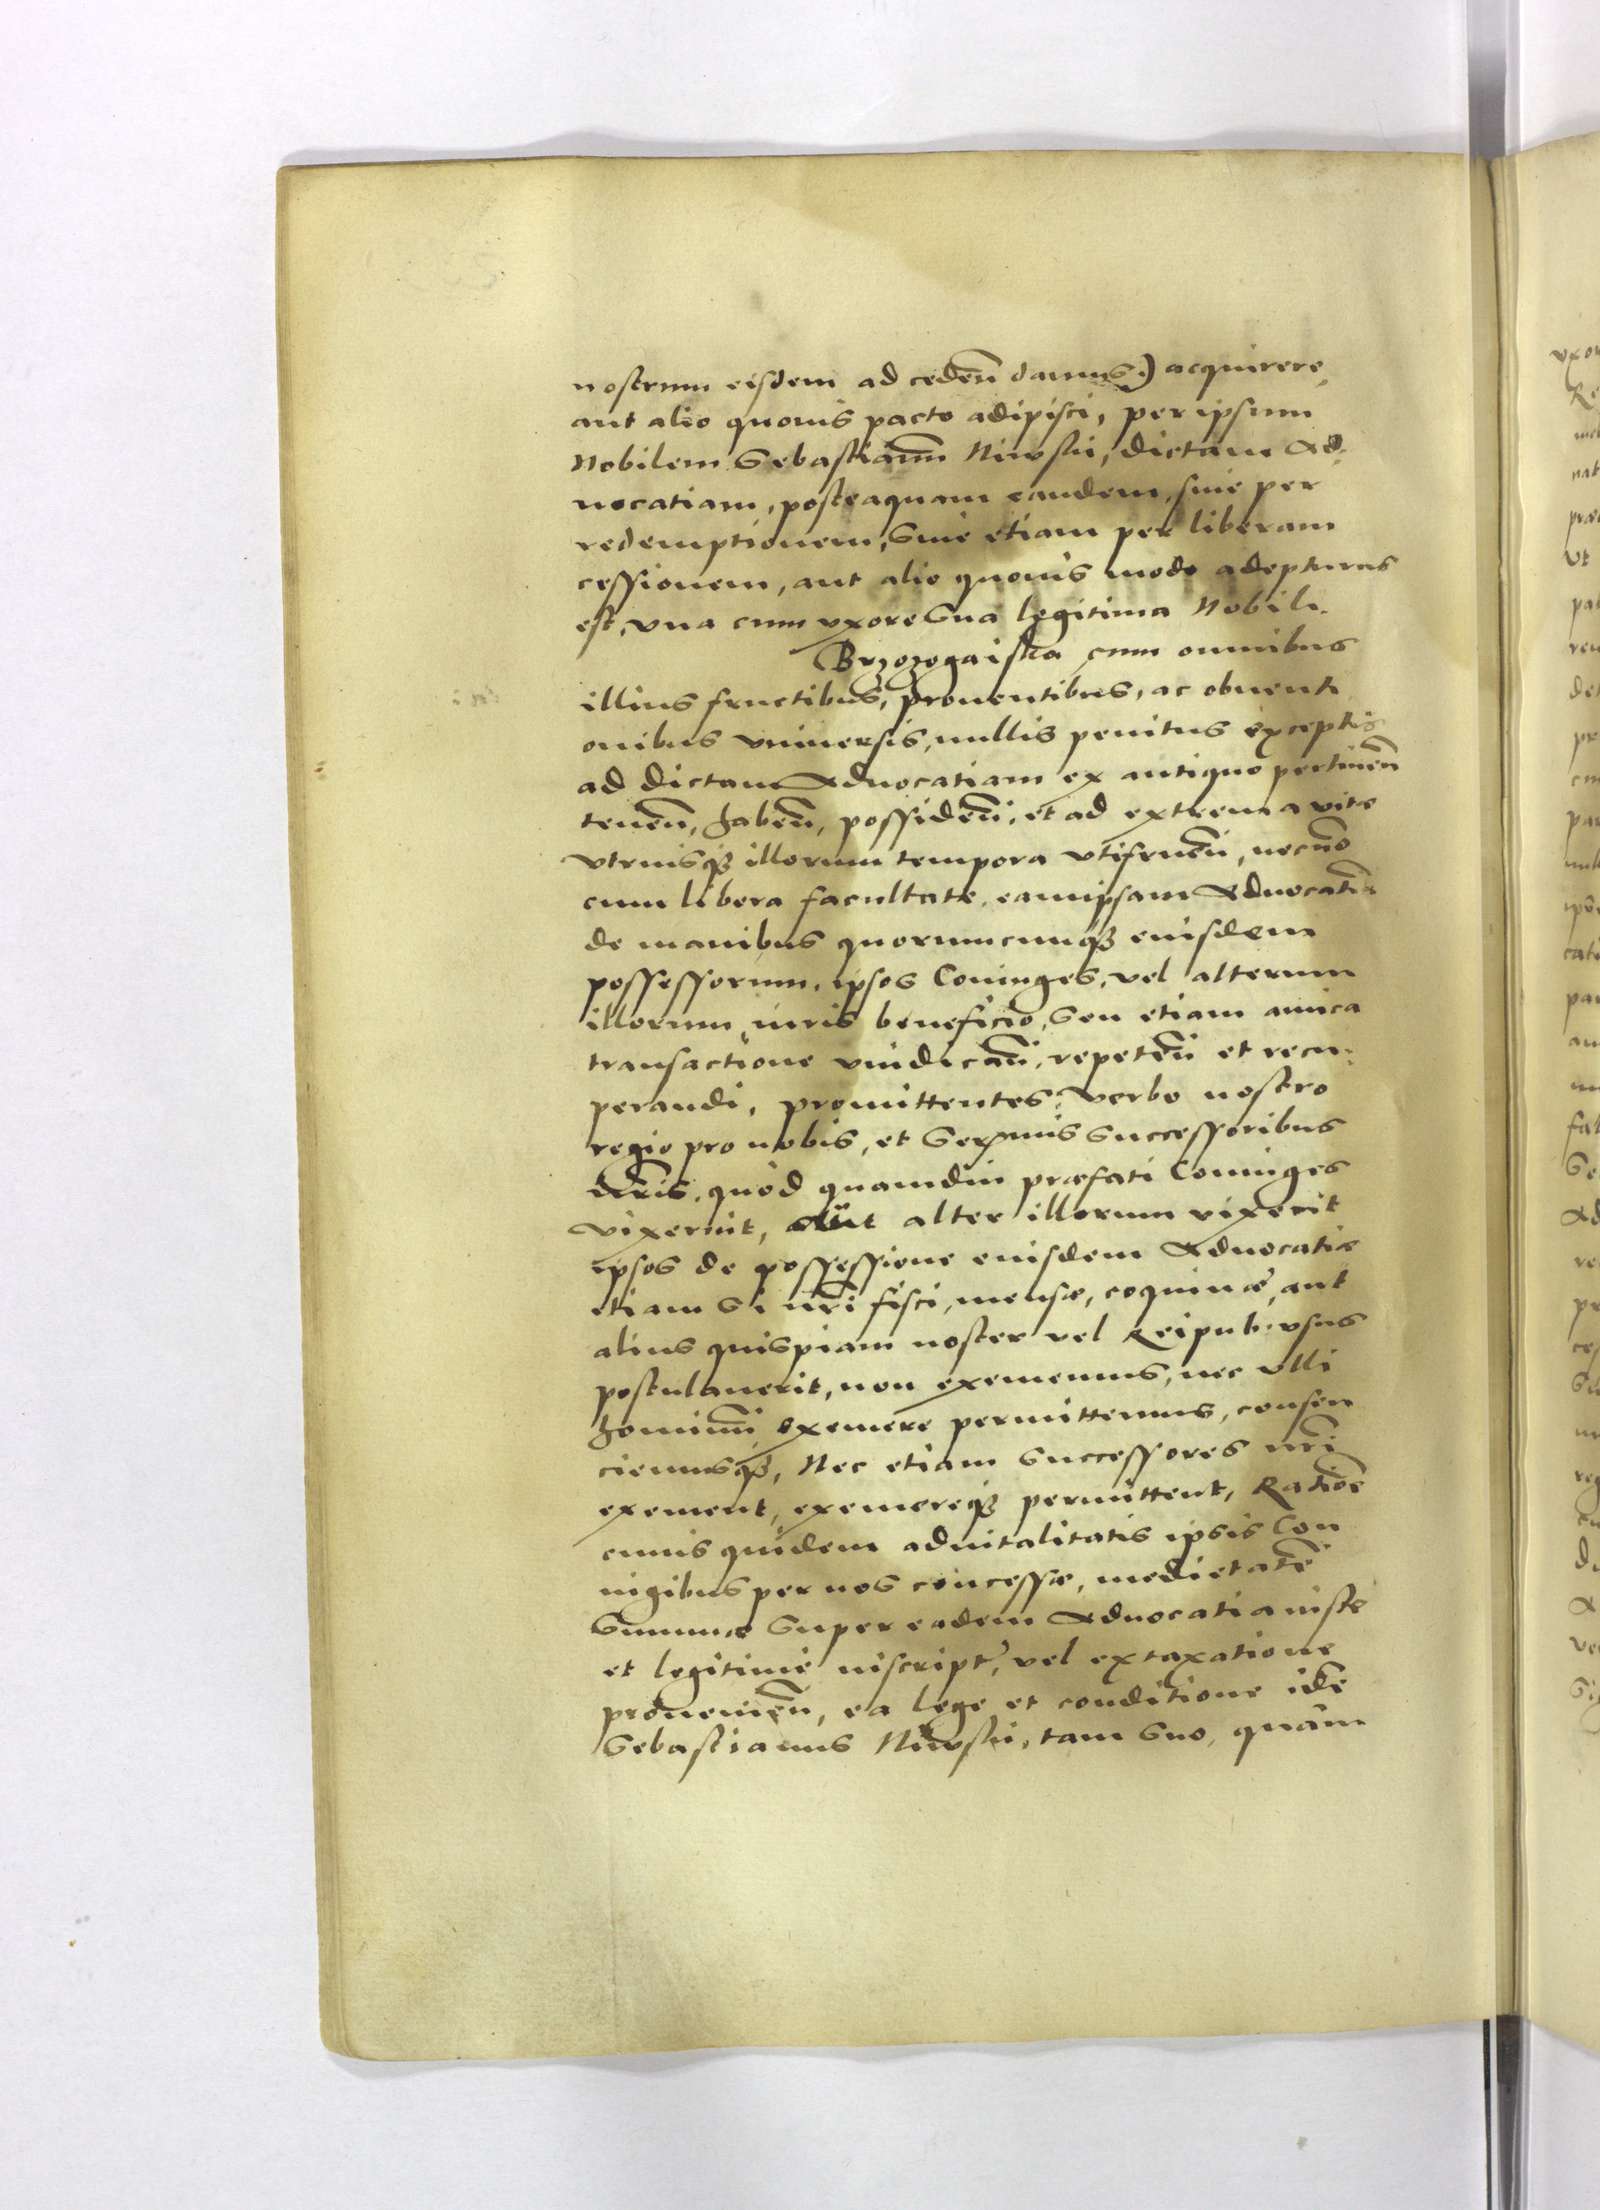 nostrum eisdem ad ceden̄ damus) acquirere,
aut alio quouis pacto adipisci, per ipsum
Nobilem Sebastianum Niwski, dictam Ad:
uocatiam, posteaquam eandem, siue per
redemptionem, Siue etiam per liberam
cessionem, aut alio quouis modo adepturus
est, vna cum vxore Sua legitima Nobili
Brzozogaiska cum omnibus
illius fructibus, prouentibus, ac obuenti
onibus vniuersis, nullis penitus exceptis
ad dictam Aduocatiam ex antiquo pertinen̄
tenen̄, haben̄, possiden̄, et ad extrema vite
vtriusq3 illorum tempora vtifruen̄, necno
cum libera facultate, eamipsam Aduocatiā
de manibus quorumcunq3 eiusdem
possessorum, ipsos Coniuges, vel alterum
illorum, iuris beneficio, Seu etiam amica
transactione vindican̄, repeten̄ et recu:
perandi, promittentes, verbo nostro
regio pro nobis, et Serenmis Successoribus
nr̄is, quòd quamdiu præfati Coniuges
vixerint, aut alter illorum vixerit
ipsos de possessione eiusdem Aduocatiæ
etiam Si nr̄i fisci, mensæ, coquinæ, aut
alius quispiam noster vel Reipub: vsus
postulauerit, non eximemus, nec vlli
hominum eximere permittemus, consen
ciemusq3, Nec etiam Successores nr̄i
eximent, eximereq3 permittent, Ratiōe
cuius quidem aduitalitatis ipsis Con
iugibus per nos concessæ, medietatē
Summæ Super eadem Aduocatia iuste
et legitimè inscriptæ, vel ex taxatione
prouenien̄, ea lege et conditione idē
Sebastianus Niwski, tam Suo, quàm